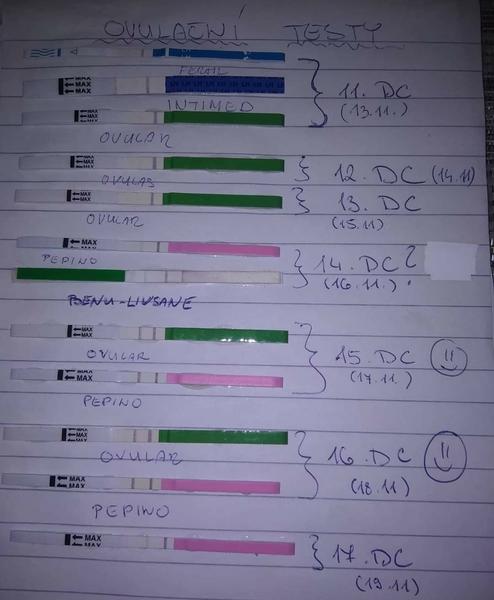 OVULAČNÍ TESTY
FERTIL
MAX
MAX
INTIMED
11. DC
(13.11.)
MAX
MAX
OVULAR
MAX
MAX
OVULAR
12. DC (14.11)
MAX
MAX
OVULAR
13. DC
(15.11)
MAX
PEPINO
14. DC ?
(16.11.)
BENU-LIVSANE
MAX
MAX
OVULAR
15. DC
(17.11.)
MAX
PEPINO
MAX
MAX
OVULAR
16. DC
(18.11)
MAX
PEPINO
MAX
17. DC
(19.11)